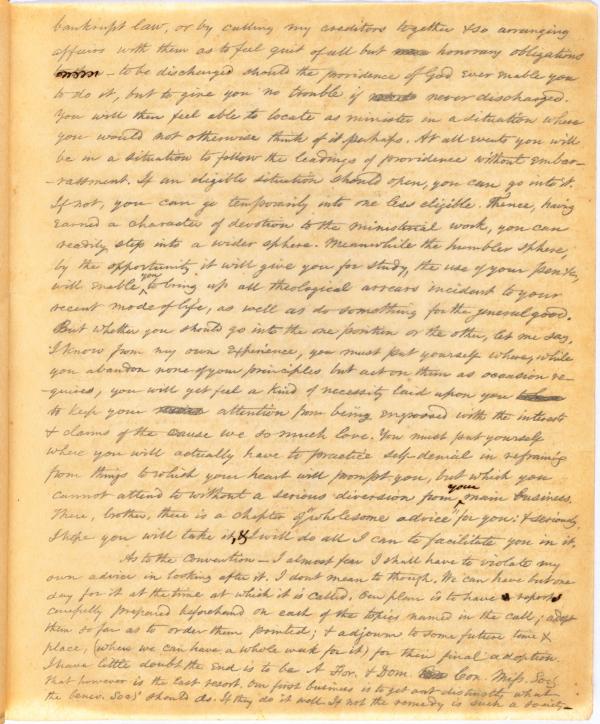 bankrupt law, or by calling my creditors together & so arranging
affairs with them as to feel quit of all but honorary obligations
– to be discharged should the providence of God ever enable you
to do it, but to give you no trouble if never discharged.
You will then feel able to locate as minister in a situation where
you would not otherwise think of it perhaps. At all events you will
be in a situation to follow the leadings of providence without embar-
-rassment. If an eligible situation should open, you can go into it.
If not, you can go temporarily into one less eligible. Thence, having
earned a character of devotion to the ministerial work, you can
readily step into a wider sphere. Meanwhile the humbler sphere,
by the opportunity it will give you for study, the use of your pen &c,
will enable you to bring up all theological arrears incident to your
recent mode of life, as well as do something for the general good.
But whether you should go into the one position or the other, let me say,
I know from my own experience, you must put yourself where, while
you abandon none of your principles but act on them as occasion re-
-quires, you will yet feel a kind of necessity laid upon you
to keep your attention from being engrossed with the interests
& claims of the cause we so much love. You must put yourself
where you will actually have to practice self-denial in refraining
from things to which your heart will prompt you, but which you
cannot attend to without a serious diversion from your main business.
There, brother, there is a chapter of "wholesome advice" for you: & seriously
I hope you will take it, & I will do all I can to facilitate you in it.
As to the Convention – I almost fear I shall have to violate my
own advice in looking after it. I dont mean to though. We can have but one
day for it at the time at which it is called. Our plan is to have reports
carefully prepared beforehand on each of the topics named in the call; adopt
them so far as to order them printed; & adjourn to some future time &
place, (where we can have a whole week for it) for their final adoption.
I have little doubt the end is to be A For. & Dom. Con. Miss. Socy
that however is the last resort. Our first business is to get out distinctly what
the benev. Socs should do. If they do it well. If not the remedy is such a society–